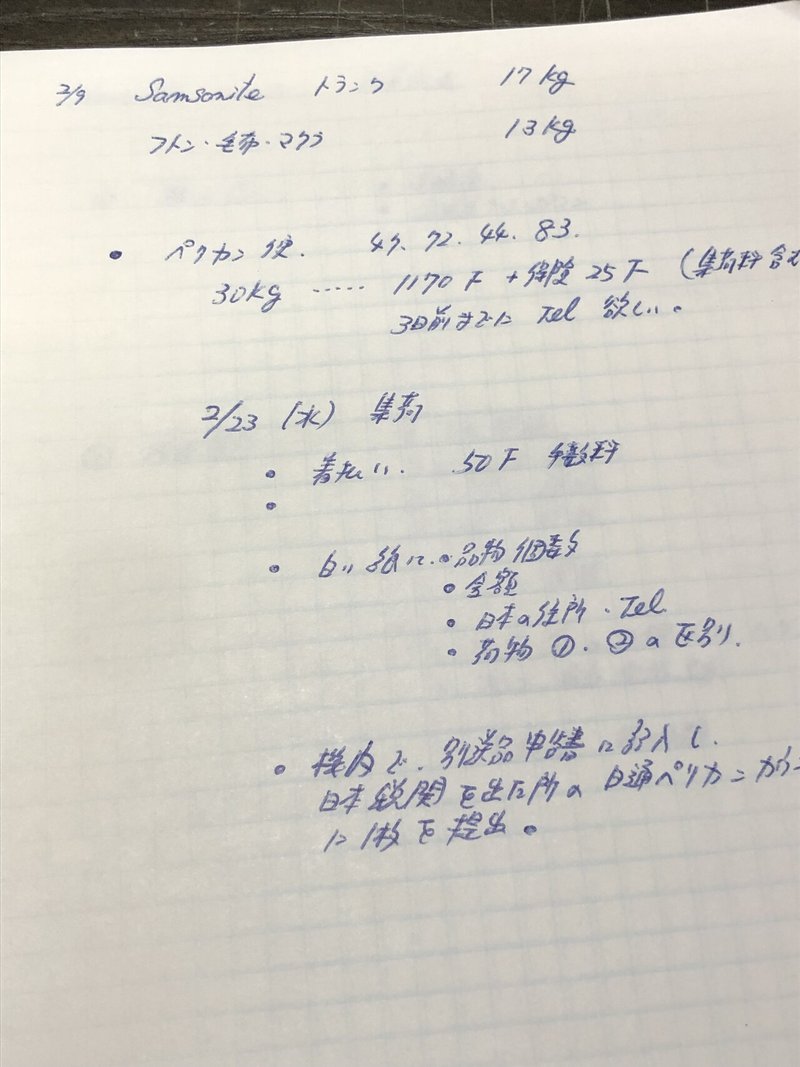 2/9 Samsonite トランク 17kg
フトン・毛布・マクラ 13kg
• ペリカン便. 47. 72. 44. 83.
30kg ..... 1170F + 保険 25F (集荷料含む
3日前までに Tel 欲しい。
2/23 (水) 集荷
• 着払い. 50F 手数料
•
• 白い紙に. • 品物 個数
• 金額
• 日本の住所・Tel
• 荷物 ①. ② の区別.
• 機内で. 別送品申告書に記入し.
日本税関を出た所の日通ペリカンカウン
に1枚を提出。